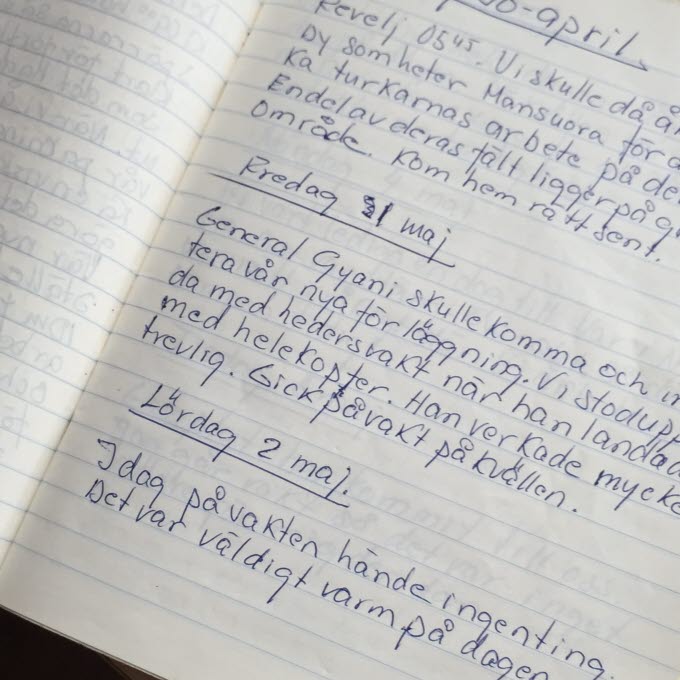 30-april.
Revelj 0545. Vi skulle då
by som heter Mansuora för
ka turkarnas arbete på
Endel av deras tält ligger på
område. Kom hem rätt sent.
Fredag 1 maj
General Gyani skulle komma och
tera vår nya förläggning. Vi stod upp
da med hedersvakt när han landa
med helekopter. Han verkade mycke
trevlig. Gick på vakt på kvällen.
Lördag 2 maj.
Idag på vakten hände ingenting.
Det var väldigt varm på dagen